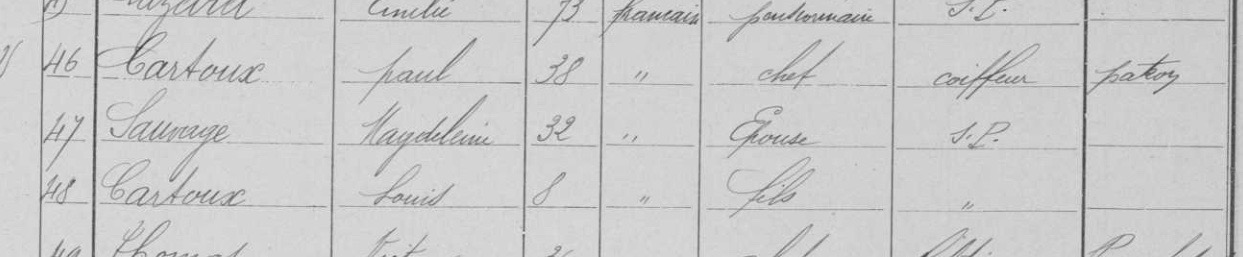 Emilie 73 français pensionnaire S.P.
46 Cartoux paul 38 " chef coiffeur patron
47 Sauvage Magdeleine 32 " Epouse S.P.
48 Cartoux Louis 8 " fils "
49 Thomas